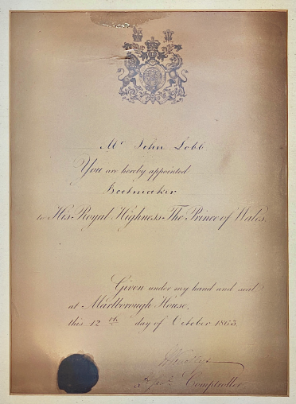 Mr John Lobb
You are hereby appointed
Bootmaker
to His Royal Highness The Prince of Wales
Given under my hand and seal
at Marlborough House,
this 12th day of October 1863
Comptroller